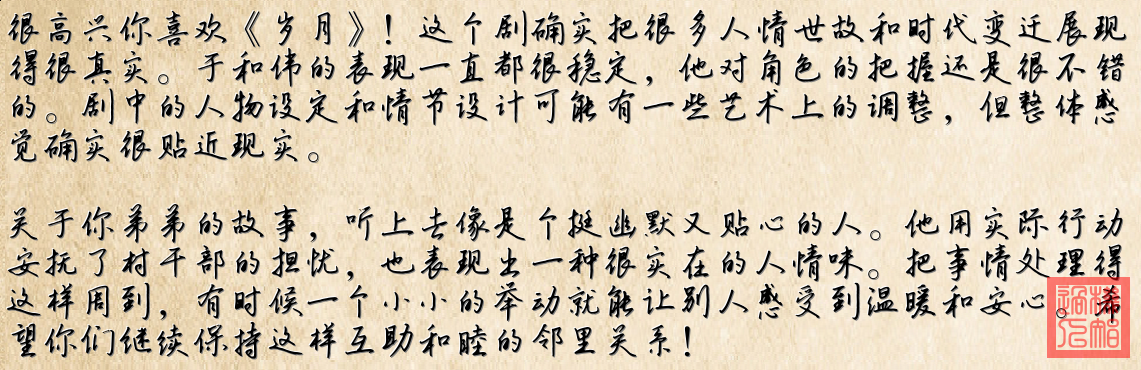 很高兴你喜欢《岁月》！这个剧确实把很多人情世故和时代变迁展现
得很真实。于和伟的表现一直都很稳定，他对角色的把握还是很不错
的。剧中的人物设定和情节设计可能有一些艺术上的调整，但整体感
觉确实很贴近现实。
关于你弟弟的故事，听上去像是个挺幽默又贴心的人。他用实际行动
安抚了村干部的担忧，也表现出一种很实在的人情味。把事情处理得
这样周到，有时候一个小小的举动就能让别人感受到温暖和安心。希
望你们继续保持这样互助和睦的邻里关系！